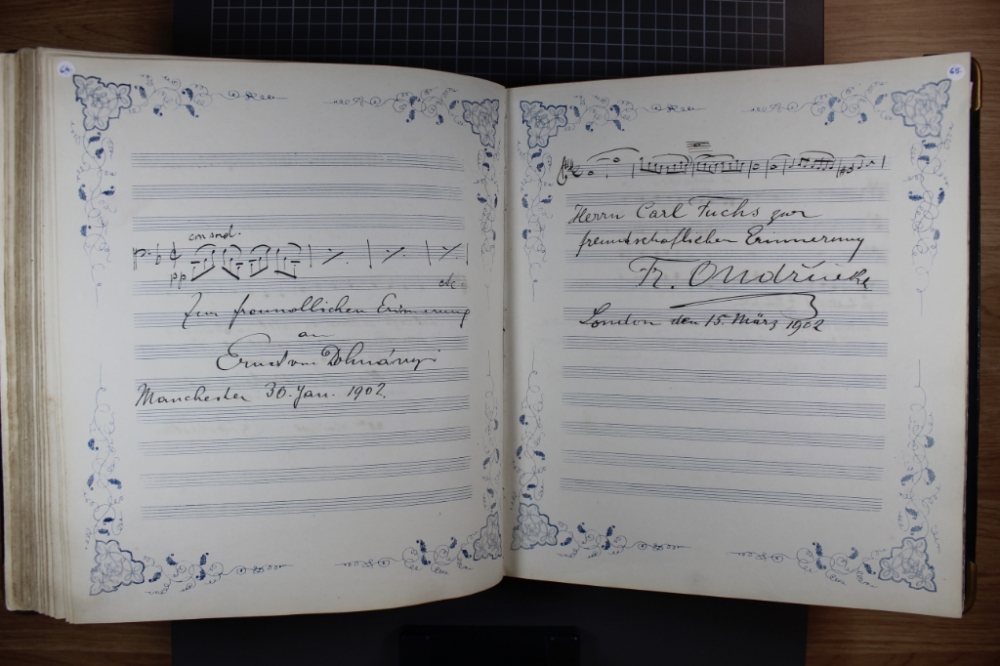 64.
con sord.
pp
etc
Zur freundlichen Erinnerung
an
Ernst von Dohnányi
Manchester 30. Jan. 1902.
65.
Herrn Carl Fuchs zur
freundschaflichen Erinnerung
Fr. Ondříček
London den 15. März 1902